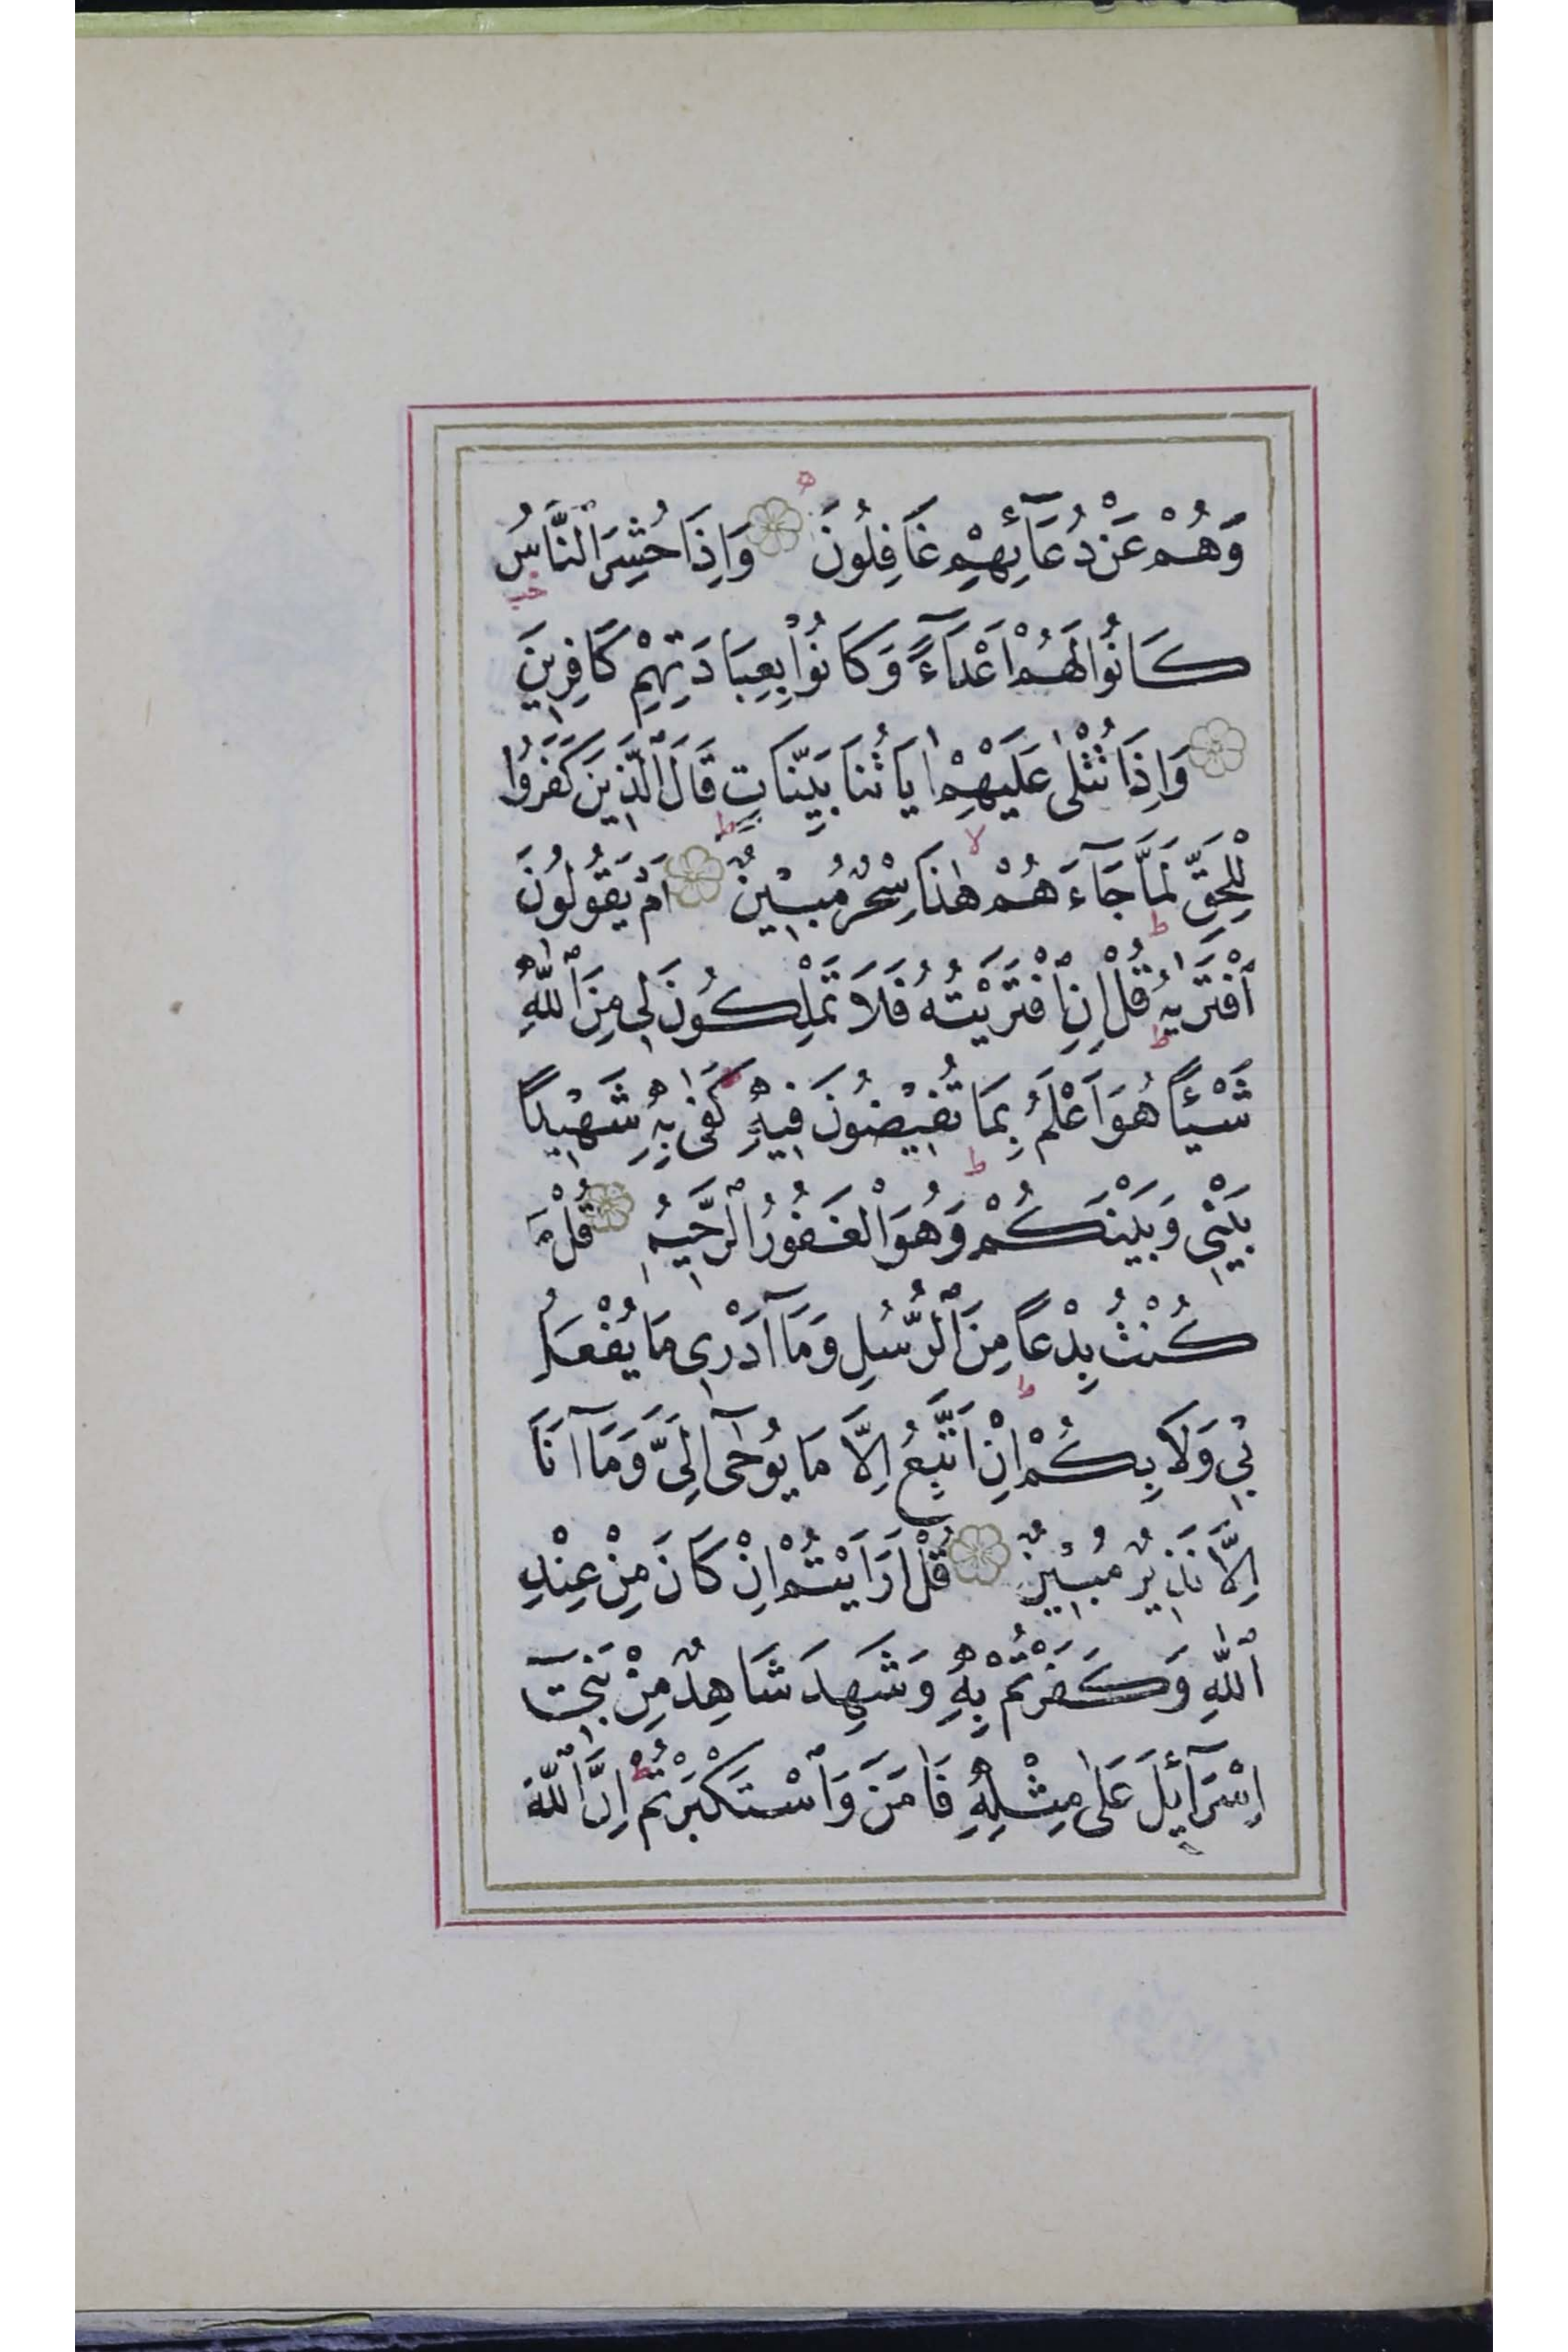 وَهُمْ عَنْ دُعَٓائِهِمْ غَافِلُونَ وَاِذَا حُشِرَ ٱلنَّاسُ
كَانُوا لَهُمْ اَعْدَٓاءً وَكَانُوا بِعِبَادَتِهِمْ كَافِرِينَ
وَاِذَا تُتْلٰى عَلَيْهِمْ اٰيَاتُنَا بَيِّنَاتٍ قَالَ ٱلَّذِينَ كَفَرُوا
لِلْحَقِّ لَمَّا جَٓاءَهُمْ هٰذَا سِحْرٌ مُبِينٌ اَمْ يَقُولُونَ
ٱفْتَرٰيهُ قُلْ اِنِ ٱفْتَرَيْتُهُ فَلَا تَمْلِكُونَ لِي مِنَ ٱللّٰهِ
شَيْئًا هُوَ اَعْلَمُ بِمَا تُفِيضُونَ فِيهِ كَفٰى بِهِ شَهِيدًا
بَيْنِي وَبَيْنَكُمْ وَهُوَ ٱلْغَفُورُ ٱلرَّحِيمُ قُلْ مَا
كُنْتُ بِدْعًا مِنَ ٱلرُّسُلِ وَمَٓا اَدْرِي مَا يُفْعَلُ
بِي وَلَا بِكُمْ اِنْ اَتَّبِعُ اِلَّا مَا يُوحٰٓى اِلَيَّ وَمَٓا اَنَا
اِلَّا نَذِيرٌ مُبِينٌ قُلْ اَرَاَيْتُمْ اِنْ كَانَ مِنْ عِنْدِ
ٱللّٰهِ وَكَفَرْتُمْ بِهِ وَشَهِدَ شَاهِدٌ مِنْ بَنِٓي
اِسْرَٓائِلَ عَلٰى مِثْلِهِ فَاٰمَنَ وَٱسْتَكْبَرْتُمْ اِنَّ ٱللّٰهَ